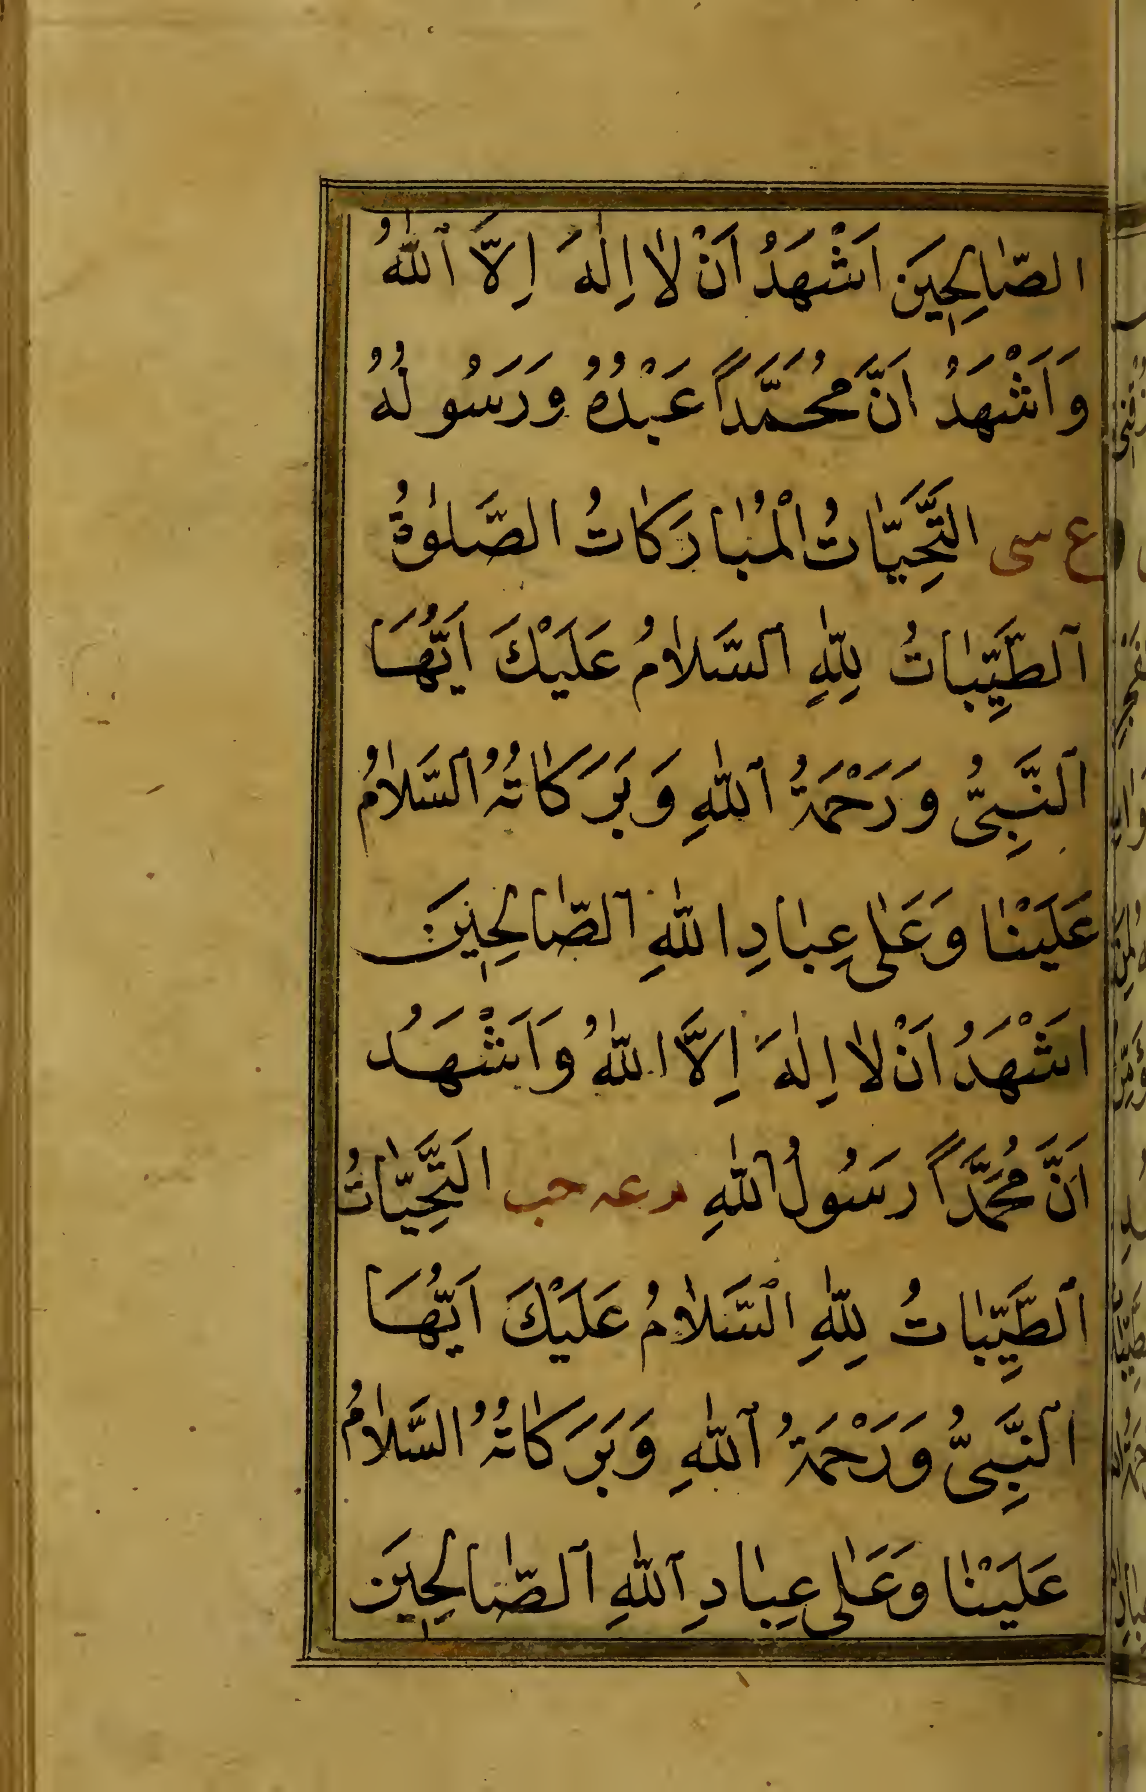 الصّٰالِحِينَ اَشْهَدُ اَنْ لاٰ اِلٰهَ اِلاَّ اللّٰهُ
وَاَشْهَدُ اَنَّ مُحَمَّداً عَبْدُهُ وَرَسُولُهُ
ع سى التَّحِيّٰاتُ الْمُبٰارَكٰاتُ الصَّلوٰةُ
اَلطَّيِّبٰاتُ لِلّٰهِ اَلسَّلاٰمُ عَلَيْكَ اَيُّهَا
اَلنَّبِىُّ وَرَحْمَةُ اَللّٰهِ وَبَرَكٰاتُهُ اَلسَّلاٰمُ
عَلَيْنٰا وَعَلٰى عِبٰادِ اللّٰهِ اَلصّٰالِحِينَ
اَشْهَدُ اَنْ لاٰ اِلٰهَ اِلاَّ اللّٰهُ وَاَشْهَدُ
اَنَّ مُحَمَّداً رَسُولُ اَللّٰهِ حب اَلتَّحِيّٰاتُ
اَلطَّيِّبٰاتُ لِلّٰهِ اَلسَّلاٰمُ عَلَيْكَ اَيُّهَا
اَلنَّبِىُّ وَرَحْمَةُ اَللّٰهِ وَبَرَكٰاتُهُ السَّلاٰمُ
عَلَيْنٰا وَعَلٰى عِبٰادِ اَللّٰهِ اَلصّٰالِحِينَ